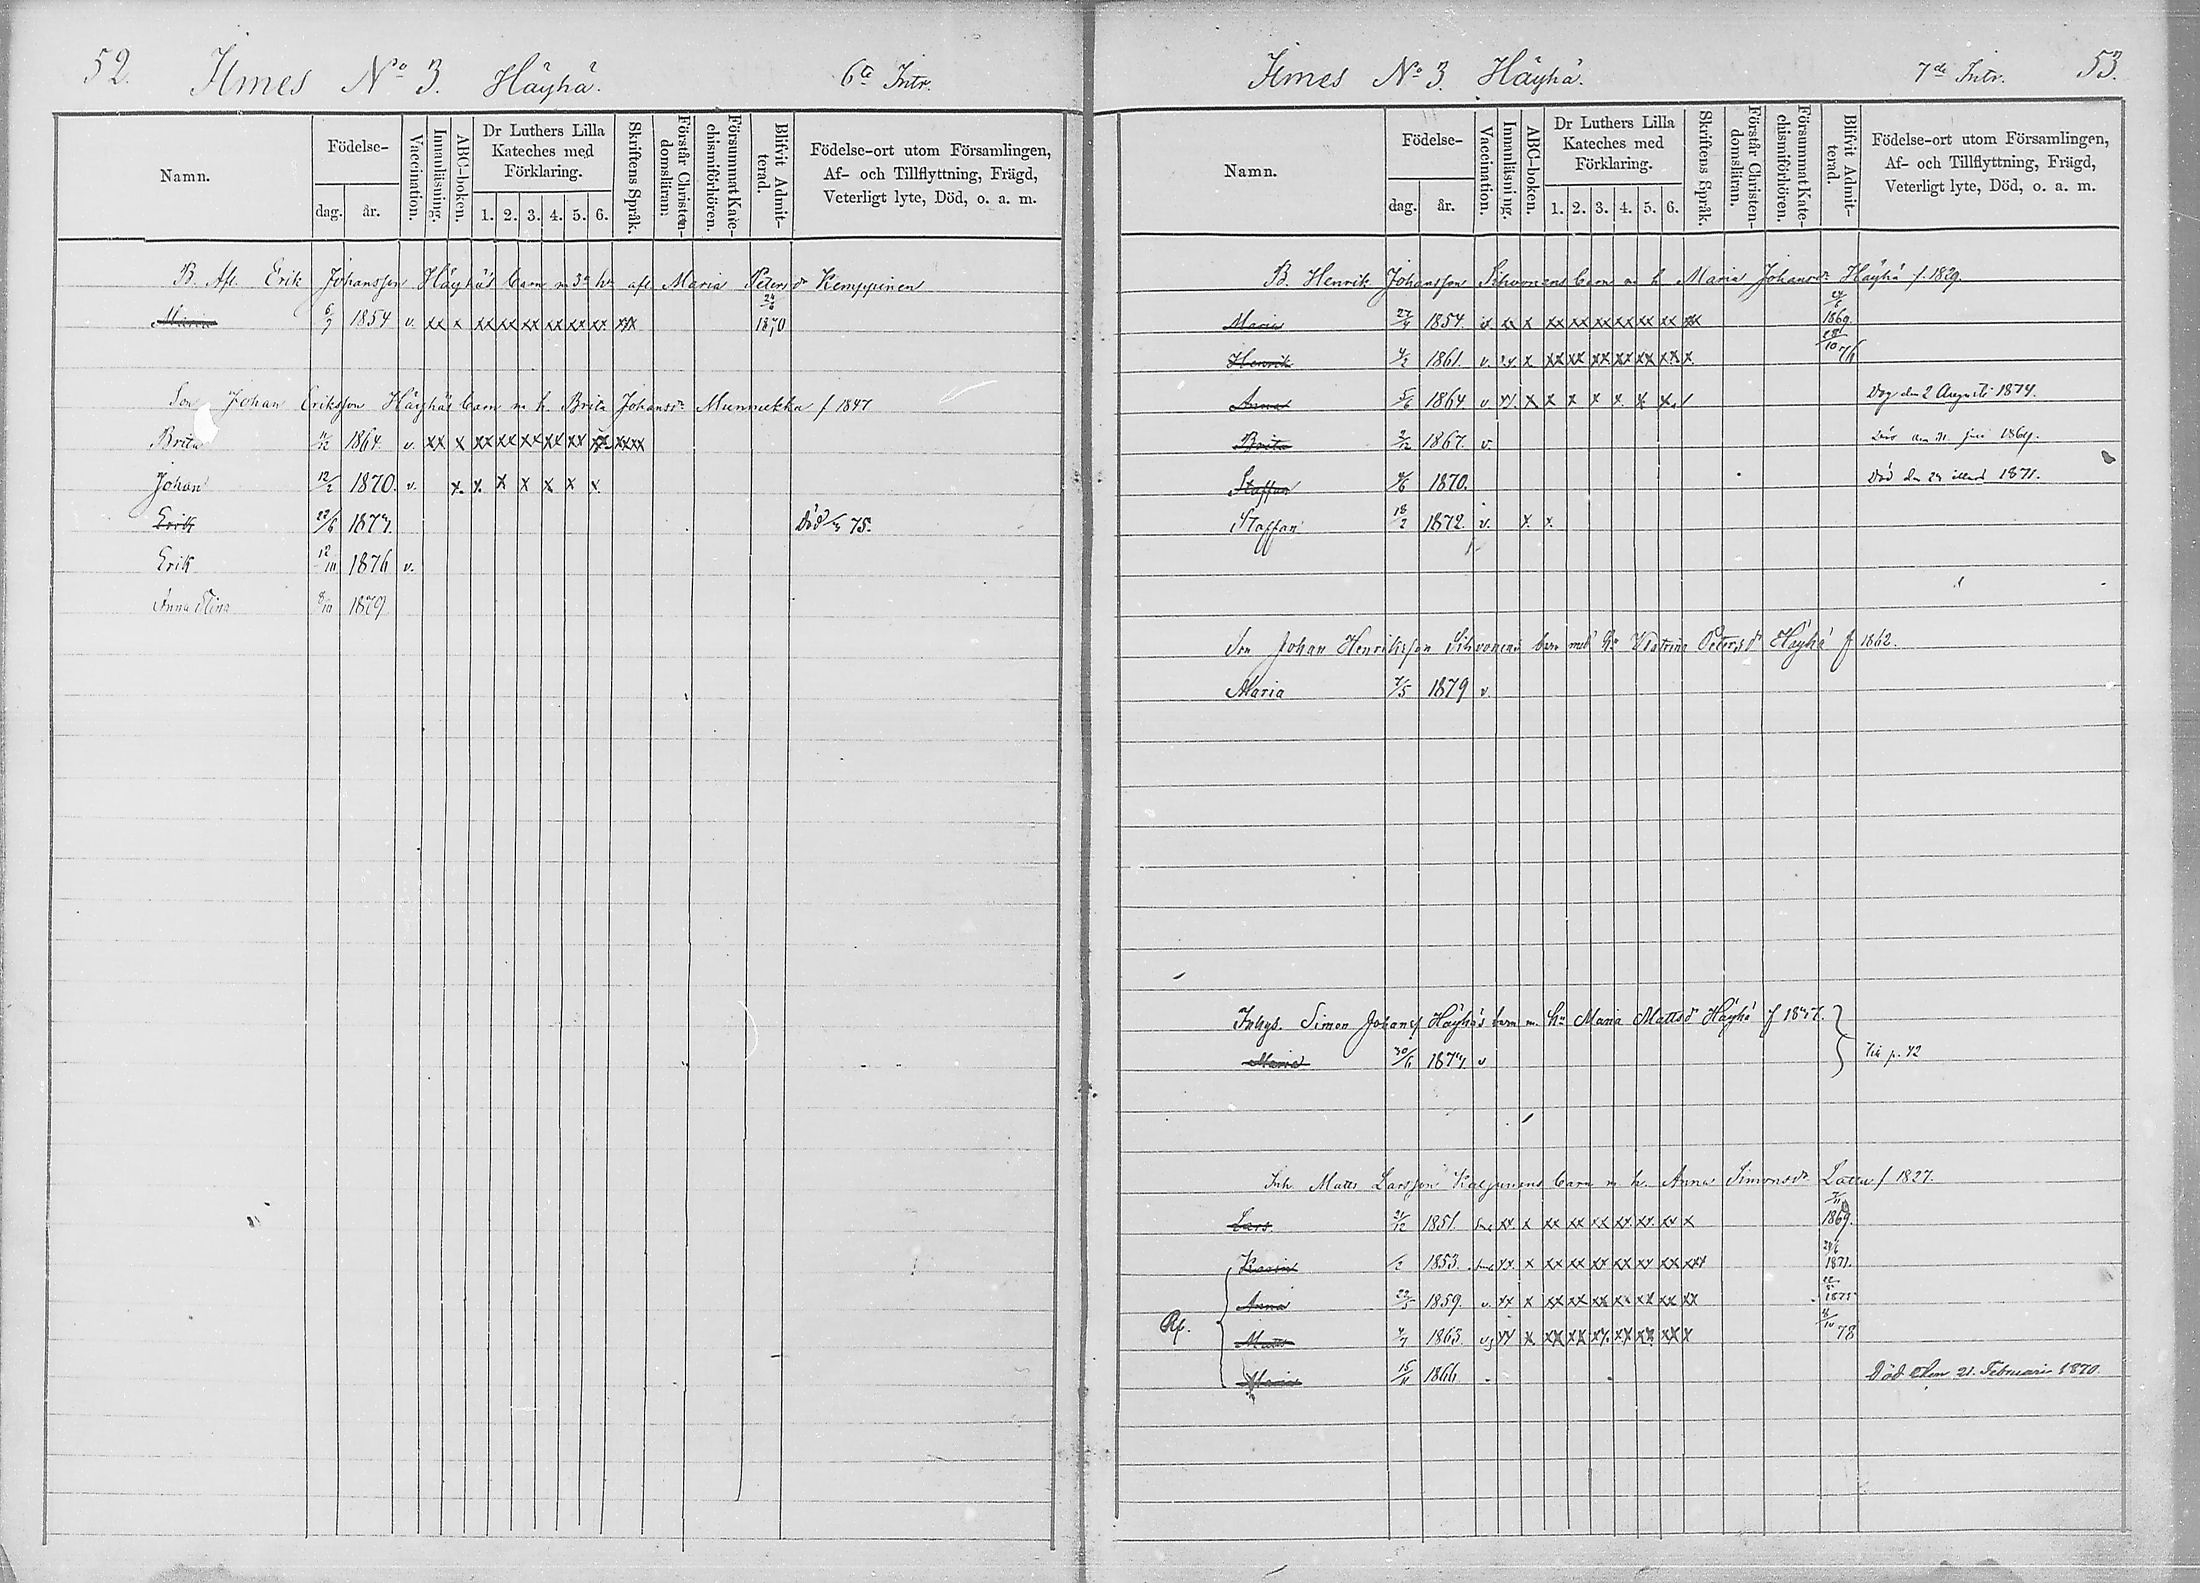 52. Ilmes No 3. Häyhä. 6te Intr.
Namn.
Födelse-
dag. år.
Vaccination.
Innanläsning.
ABC-boken.
Dr Luthers Lilla
Kateches med
Förklaring.
1. 2. 3. 4. 5. 6.
Skriftens Språk.
Förstår Christen-
domsläran.
Försummat Kate-
chismiförhören.
Blifvit Admit-
terad.
Födelse-ort utom Församlingen,
Af- och Tillflyttning, Frägd,
Veterligt lyte, Död, o. a. m.
B. Afl. Erik Johansson Häyhäs barn m 3e h. afl Maria Petersdr Kemppinen
Maria 6/7 1854 v. xx x xx xx xx xx xx xx xxx 24/6 1870
Son Johan Eriksson Häyhäs barn m h. Brita Johansdr Munnukka f 1847
Brita 1864 v. xx x xx xx xx xx xx xx xxxx
Johan 12/2 1870. v. x. x. x x x x x.
Erik 22/6 1874. Död 75.
Erik 12/10 1876 v.
Anna Elina 8/10 1879
Ilmes No 3. Häyhä. 7de Intr. 53.
Namn.
Födelse-
dag. år.
Vaccination.
Innanläsning.
ABC-boken.
Dr Luthers Lilla
Kateches med
Förklaring.
1. 2. 3. 4. 5. 6.
Skriftens Språk.
Förstår Christen-
domsläran.
Försummat Kate-
chismiförhören.
Blifvit Admit-
terad.
Födelse-ort utom Församlingen,
Af- och Tillflyttning, Frägd,
Veterligt lyte, Död, o. a. m.
B. Henrik Johansson Sihvonens barn m h Maria Johansdr Häyhä f. 1829.
Maria 27/4 1854. v. xx x xx xx xx xx xx xx xx 1869.
Henrik 4/2 1861. v. xx. x xx xx xx xx xx xx x 28/10 76
Anna 5/6 1864. v xx. x x x x x. x. x. Dog den 2 Augusti 1874.
Brita 2/12 1867. v. Död den 31 juli 1869.
Staffan 1870. Död den 1871.
Staffan 18/2 1872. v. x. x.
Son Johan Henriksson Sihvonens barn med hu Katrina Petersdr Häyhä f 1862.
Maria 7/5 1879 v.
Inhys. Simon Johanss Häyhäs barn m. hu Maria Mattsdr Häyhä f 1847.
Maria 30/6 1874. v p. 42
Inh Matts Larsson Kaljunens barn m h. Anna Simonsdr f 1827.
Lars 21/12 1851. xx. x xx xx xx xx. xx. xx x 1869.
Karin 1853. xx. x xx xx xx xx xx xx xxx 24/6 1871.
Anna 22/5 1859. v. xx x xx xx xx xx xx xx xx 1875
Rf.
Matts 1863. v. xx x xx xx xx. xx xx. xx x 78
Maria 15/11 1866 Död den 21. Februari 1870